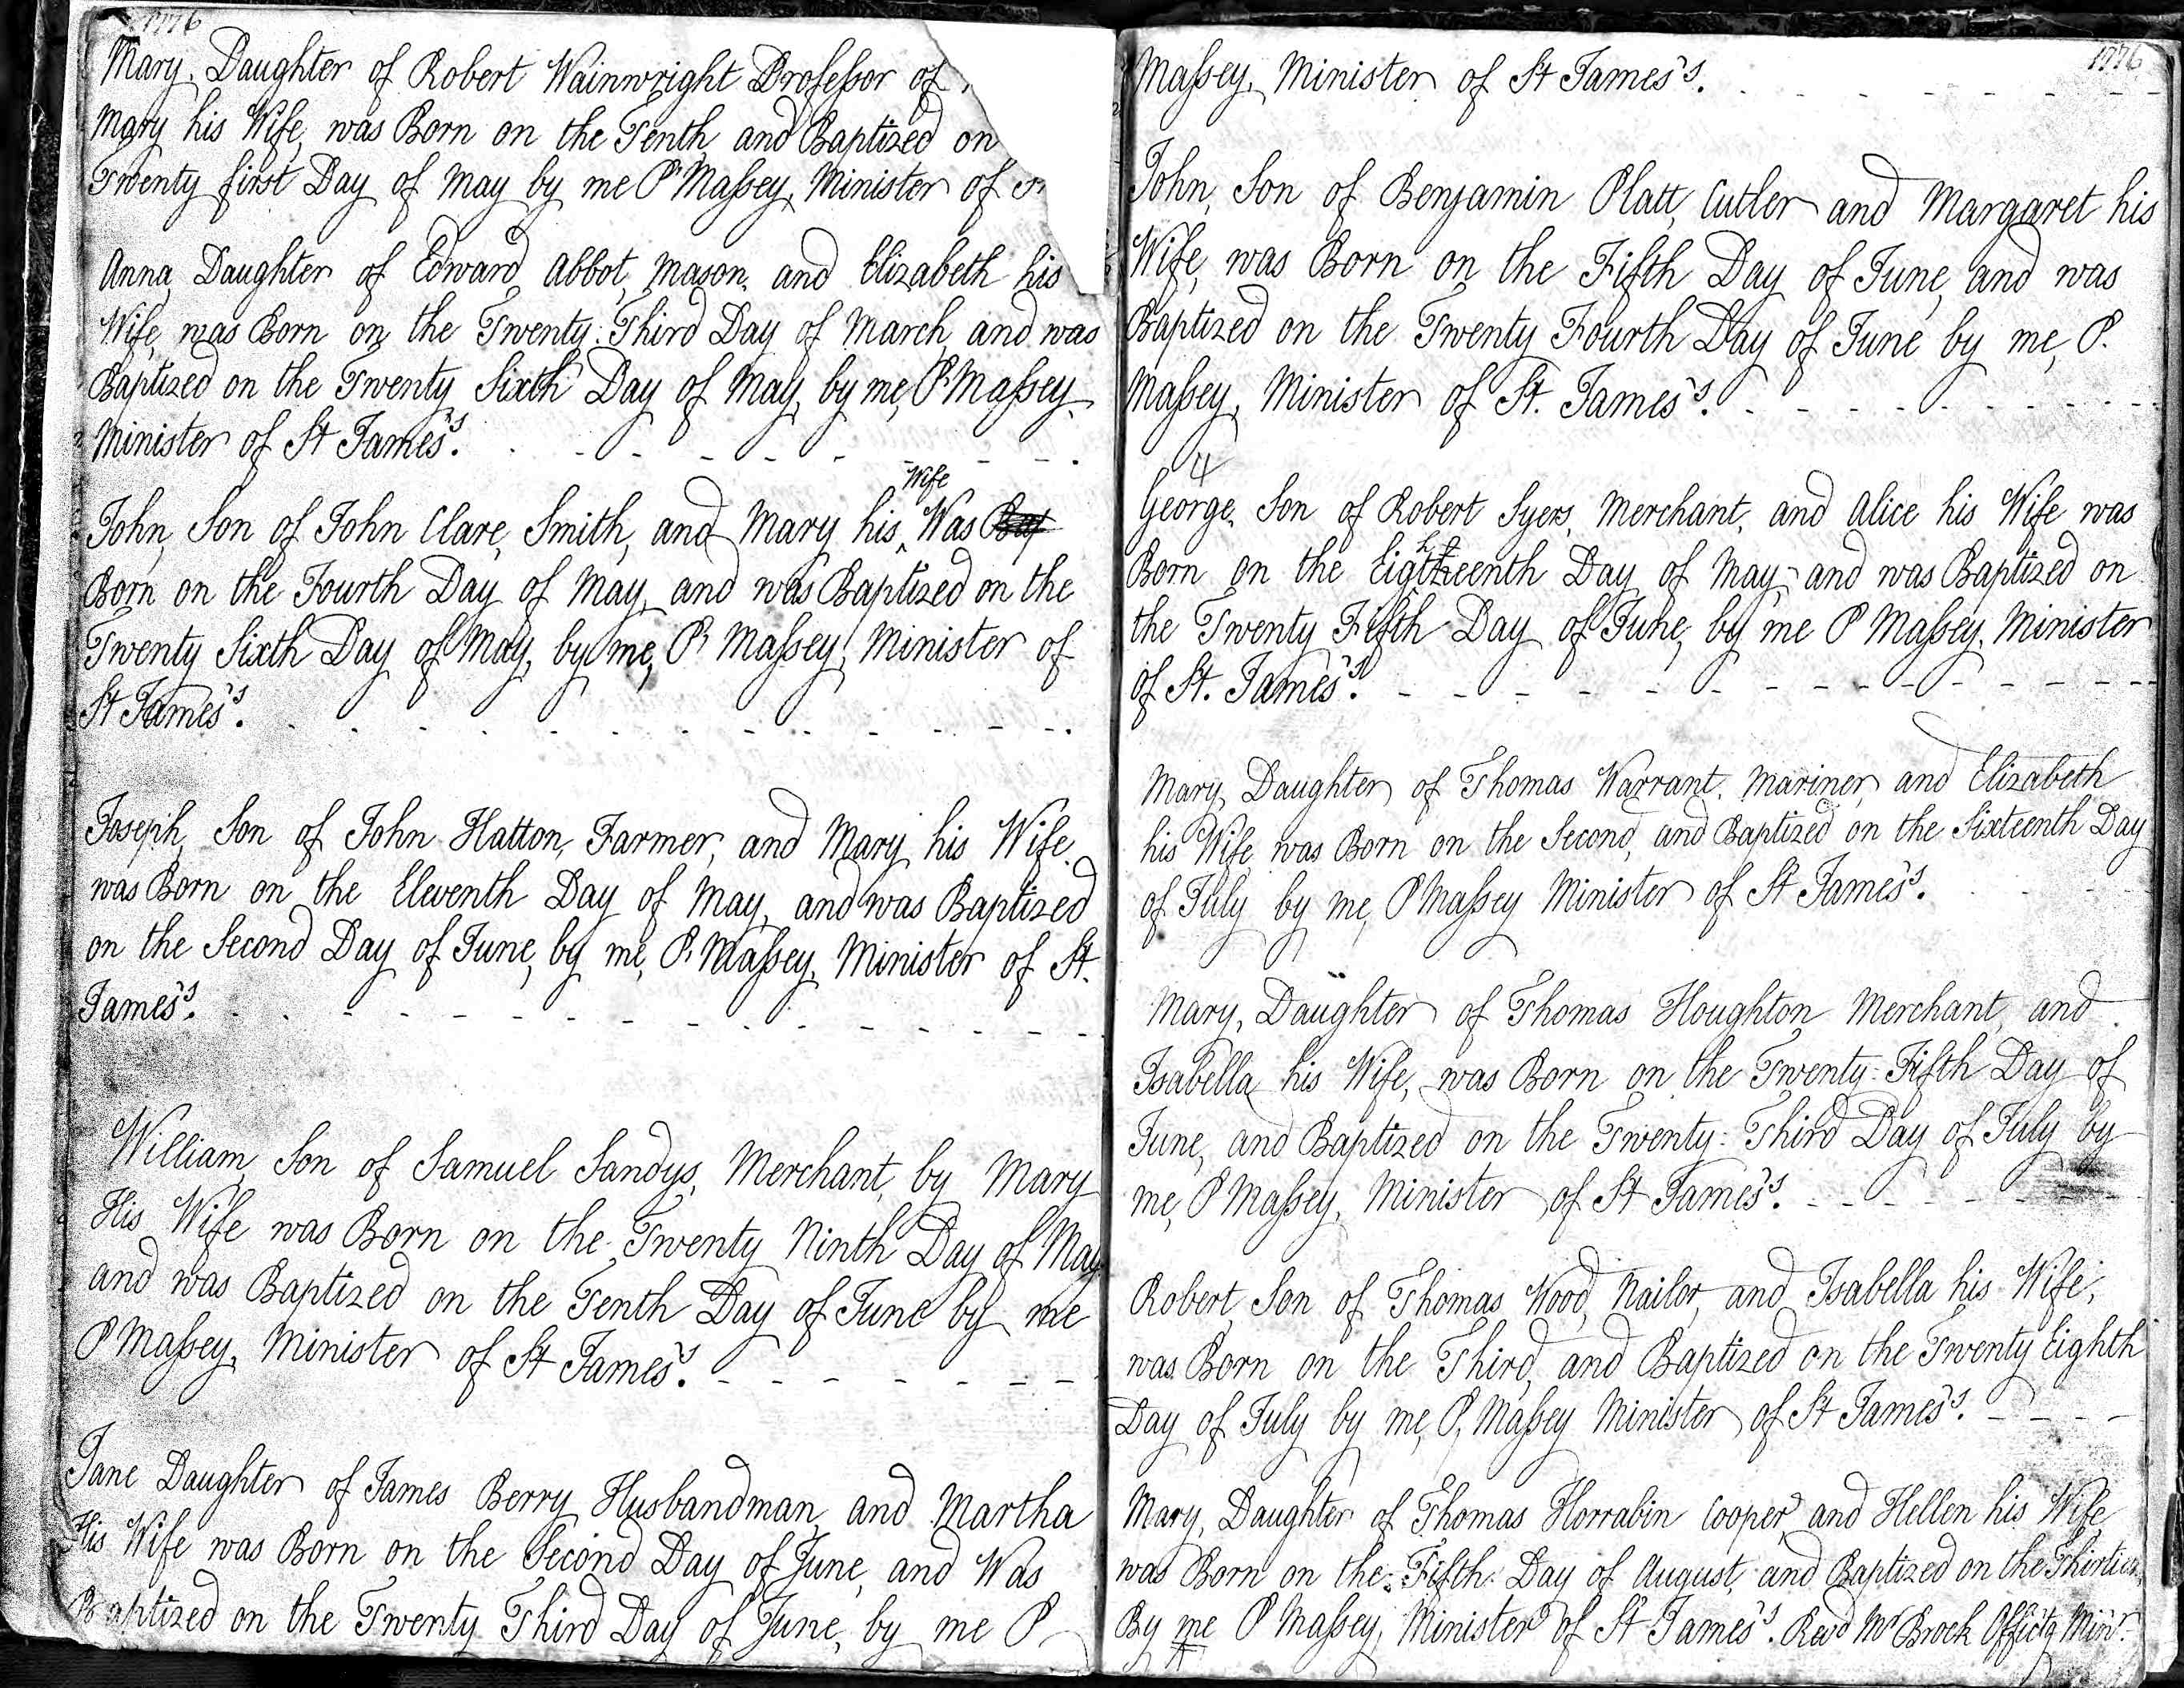 1776
Mary, Daughter of Robert Wainwright Professor of
Mary his Wife, was Born on the Tenth, and Baptized on
Twenty first Day of May by me P Massey, Minister of
Anna, Daughter of Edward Abbot, Mason, and Elizabeth his
Wife, was Born on the Twenty Third Day of March, and was
Baptized on the Twenty Sixth Day of May, by me, P. Massey.
Minister of St James's.
Wife
John, Son of John Clare, Smith, and Mary his ‸ Was Bap
Born on the Fourth Day of May, and was Baptized on the
Twenty Sixth Day of May, by me, P. Massey, Minister of
St James's.
Joseph, Son of John Hatton, Farmer, and Mary his Wife.
was Born on the Eleventh Day of May, and was Baptized
on the Second Day of June, by me, P. Massey, Minister of St.
James's.
William, Son of Samuel Sandys, Merchant, by Mary
His Wife was Born on the Twenty Ninth Day of May
and was Baptized on the Tenth Day of June by me
P Massey, Minister of St James's.
Jane Daughter of James Berry Husbandman, and Martha
His Wife was Born on the Second Day of June, and Was
Baptized on the Twenty Third Day of June, by me P
1776
Massey, Minister of St James's.
John, Son of Benjamin Platt, Cutler and Margaret his
Wife, was Born on the Fifth Day of June, and was
Baptized on the Twenty Fourth Day of June by me, P.
Massey, Minister of St. James's.
4
George, Son of Robert Syers, Merchant, and Alice his Wife was
Born on the Eighteenth Day of May, and was Baptized on
the Twenty Fifth Day of June, by me P Massey, Minister
of St. James's.
Mary, Daughter of Thomas Warrant, Mariner, and Elizabeth
his Wife, was Born on the Second, and Baptized on the Sixteenth Day
of July by me, P Massey Minister of St James's.
Mary, Daughter of Thomas Houghton Merchant, and
Isabella his Wife, was Born on the Twenty-Fifth Day of
June, and Baptized on the Twenty: Third Day of July by
me, P Massey, Minister of St James's.
Robert, Son of Thomas Wood, Nailor, and Isabella his Wife,
was Born on the Third, and Baptized on the Twenty Eighth
Day of July by me, P. Massey Minister of St James's.
Mary, Daughter of Thomas Horrabin Cooper, and Hellen his Wife
was Born on the Fifth Day of August, and Baptized on the Thirtieth
By me P Massey, Minister of St James's. Revd Mr Brock Officig Minr.